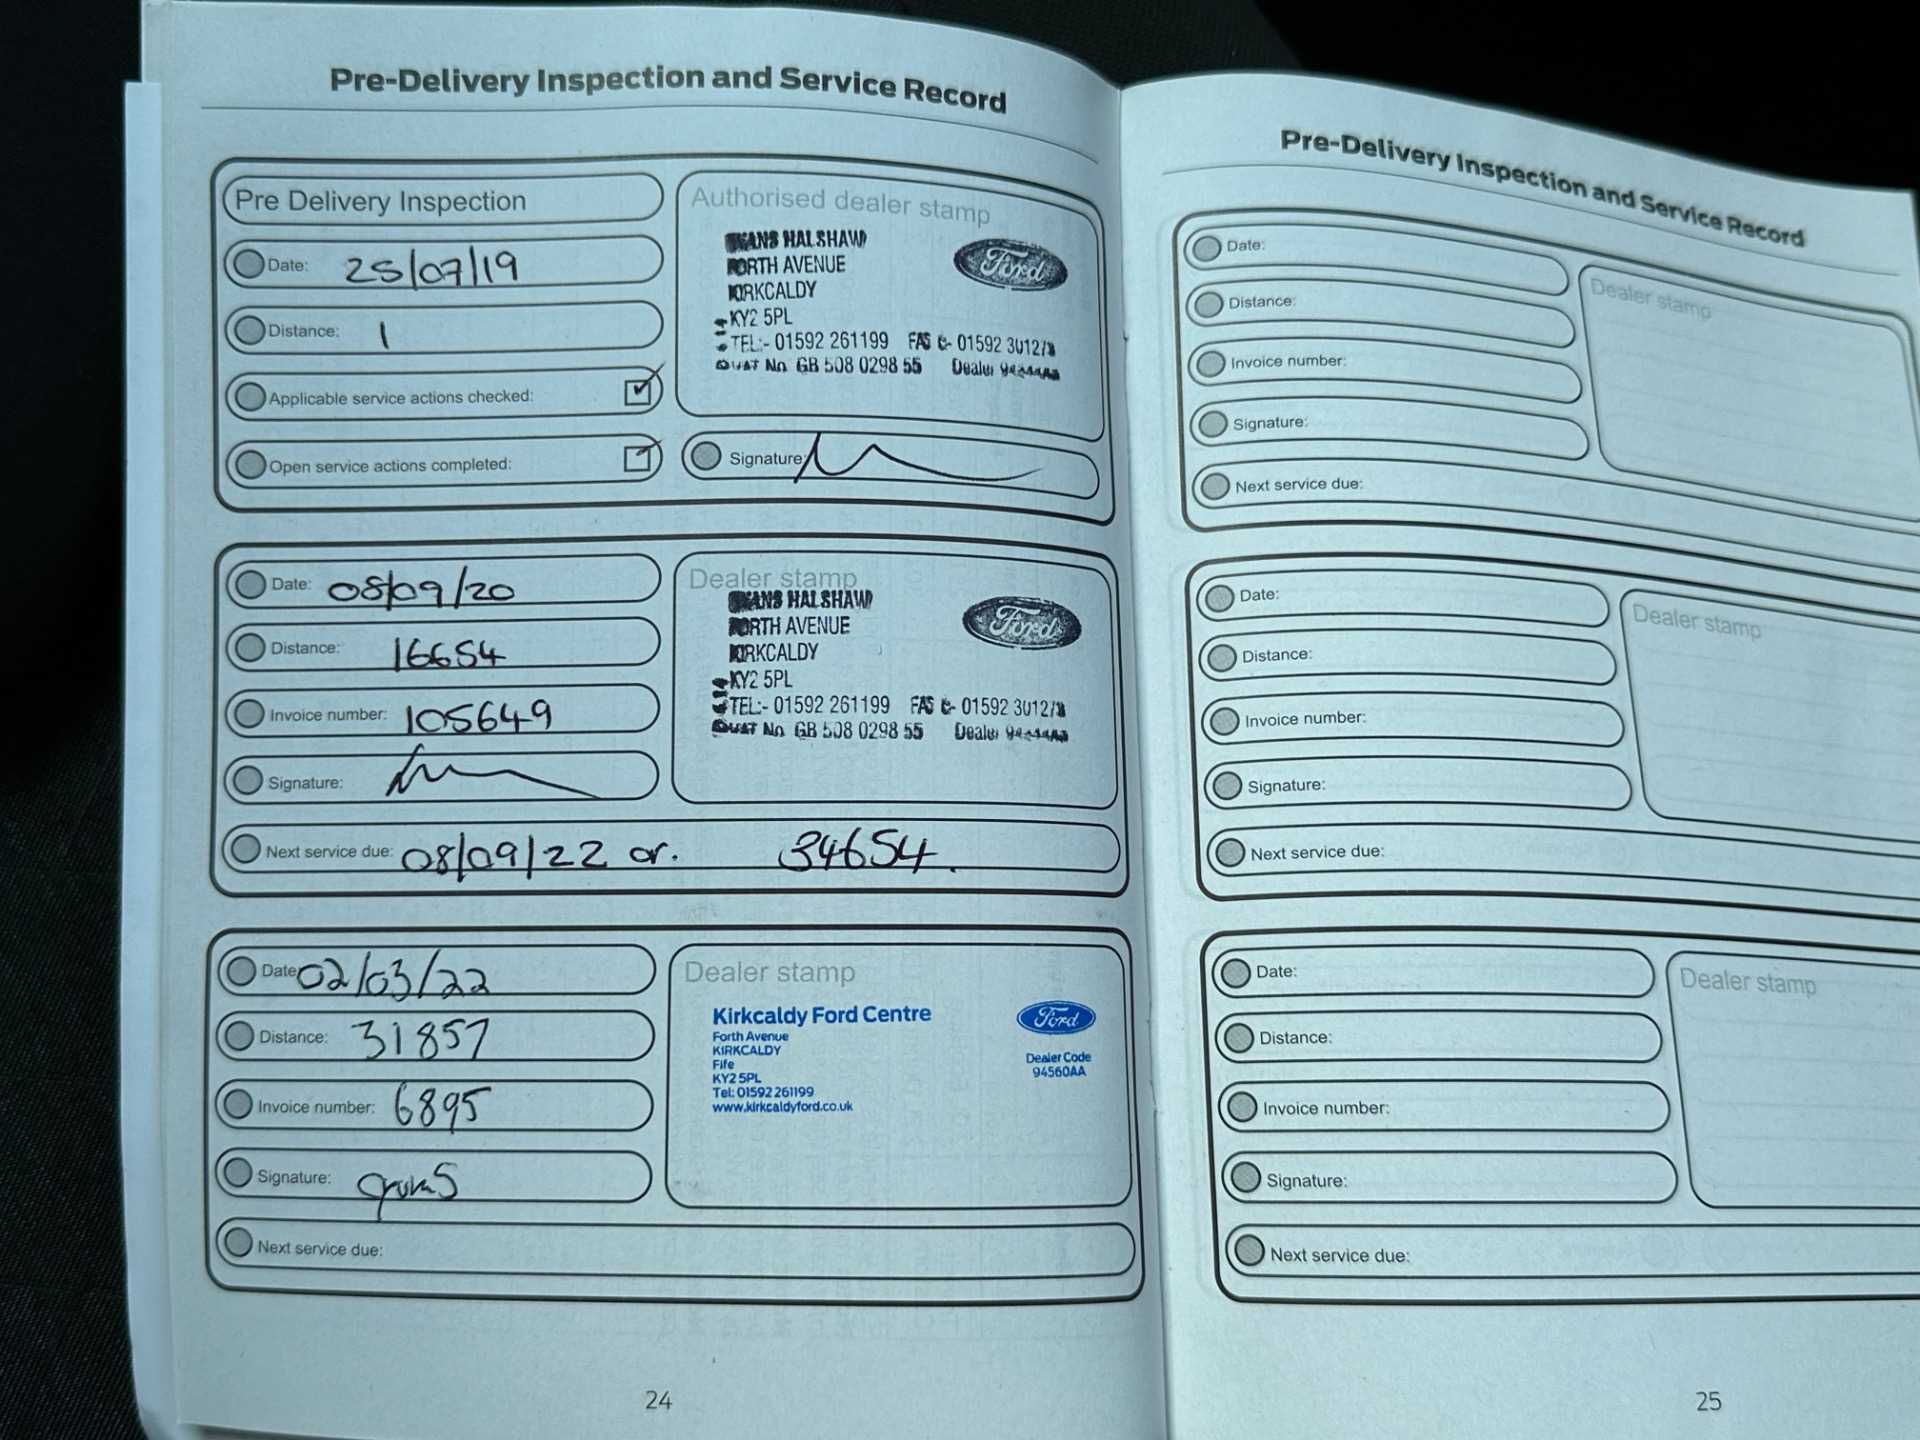 Pre-Delivery Inspection and Service Record
Pre Delivery Inspection
Date: 25/07/19
Distance: 1
Applicable service actions checked:
Open service actions completed:
Authorised dealer stamp
EVANS HALSHAW
FORTH AVENUE
KIRKCALDY
KY2 5PL
TEL:- 01592 261199
VAT No GB 508 0298 55 Dealer
Ford
Signature:
Date: 08/09/20
Distance: 16654
Invoice number: 105649
Signature:
Next service due: 08/09/22 or. 34654.
Dealer stamp
EVANS HALSHAW
FORTH AVENUE
KIRKCALDY
KY2 5PL
TEL:- 01592 261199
VAT No GB 508 0298 55 Dealer
Ford
Date: 02/03/22
Distance: 31857
Invoice number: 6895
Signature:
Next service due:
Dealer stamp
Kirkcaldy Ford Centre
Forth Avenue
KIRKCALDY
Fife
KY2 5PL
Tel: 01592 261199
www.kirkcaldyford.co.uk
Ford
Dealer Code
94560AA
24
Pre-Delivery Inspection and Service Record
Date:
Distance:
Invoice number:
Signature:
Next service due:
Dealer stamp
Date:
Distance:
Invoice number:
Signature:
Next service due:
Dealer stamp
Date:
Distance:
Invoice number:
Signature:
Next service due:
Dealer stamp
25